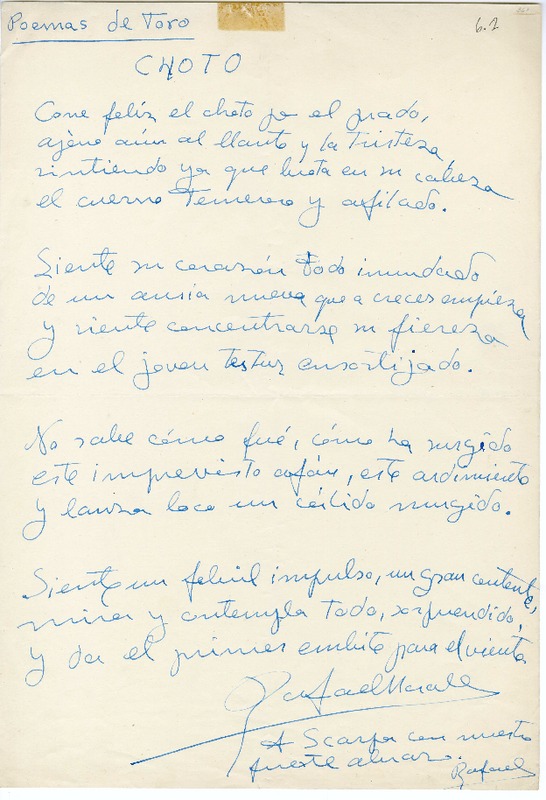 Poemas de Toro
6.2
CHOTO
Corre feliz el choto por el prado,
ajeno aún al llanto y la tristeza,
sintiendo ya que brota en su cabeza
el cuerno ternero y afilado.
Siente su corazón todo inundado
de un ansia nueva que a crecer empieza
y siente concentrarse su fiereza
en el joven testuz ensortijado.
No sabe cómo fué, cómo ha surgido
este imprevisto afán, este ardimiento
y lanza loco un cálido mugido.
Siente un febril impulso, un gran contento,
mira y contempla todo, sorprendido,
y da el primer embite para el viento
Rafael Morales
A Scarpa con nuestro
fuerte abrazo.
Rafael